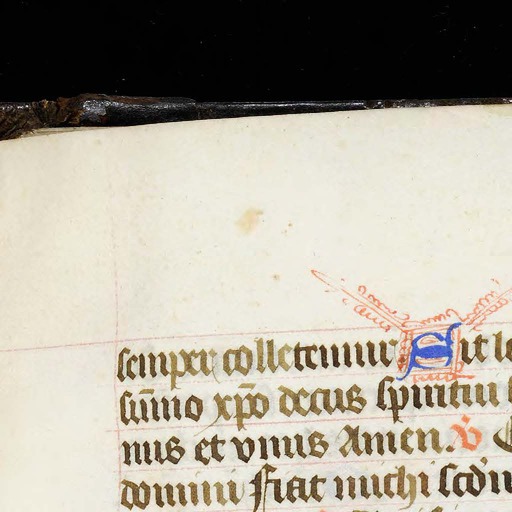 semper colletemur Sit l
su̅mo xp̅o decus spiritui
nus et vnus Amen. v̅
domini Fiat michi scd̅m